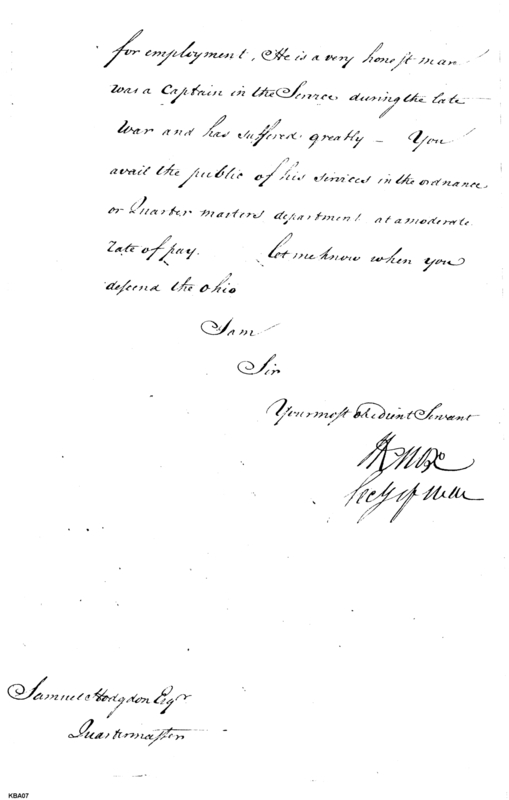 for employment. He is a very honest man
was a Captain in the Service during the late
War and has suffered greatly – You
avail the public of his services in the ordnance
or Quarter masters department at a moderate
rate of pay. let me know when you
descend the Ohio
I am
Sir
Your most obedient Servant
H Knox
Secy of War
Samuel Hodgdon Esqr
Quartermaster
KBA07